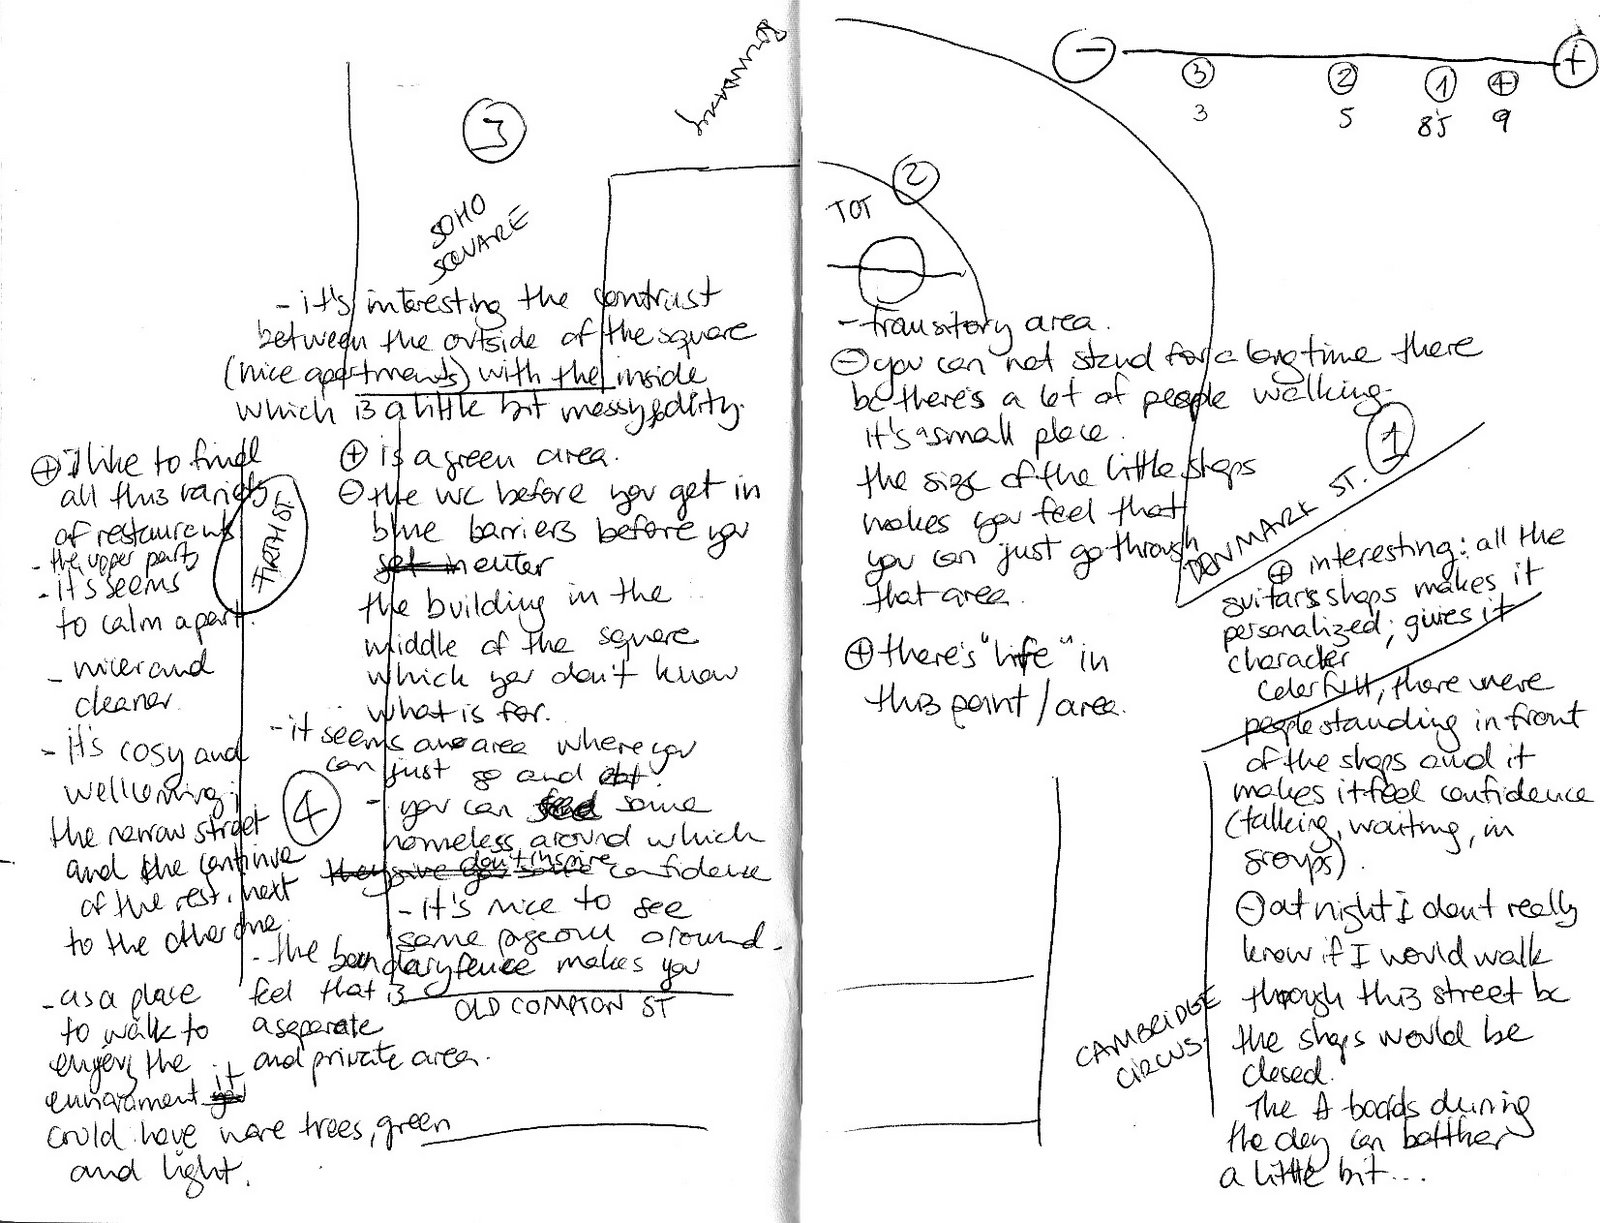 3
SOHO
SQUARE
- it's interesting the contrast
between the outside of the square
(nice apartments) with the inside
which is a little bit messy & dirty.
⊕ is a green area.
⊖ the wc before you get in
blue barriers before you
get in enter
the building in the
middle of the square
which you don't know
what is for.
- it seems an area where you
can just go and
- you can some
homeless around which
they give you don't inspire confidence
- It's nice to see
some pigeons around.
- the boundary fence makes you
feel that is
a separate
and private area.
OLD COMPTON ST
FIRTH ST.
4
⊕ I like to find
all this variety
of restaurants
- the upper parts
- It's seems
to calm apart.
- nicer and
cleaner.
- it's cosy and
wellcoming;
the narrow street
and the continue
of the rest. next
to the other one.
- as a place
to walk to
enjoy the
enviroment it
could have more trees, green
and light.
⊖ ⊕
3 2 1 4
3 5 8'5 9
2
TOT
- transitory area.
⊖ you can not stand for a long time there
bc there's a lot of people walking.
it's a small place.
the size of the little shops
makes you feel that
you can just go through
that area.
⊕ there's "life" in
this point / area.
1
DENMARK ST.
⊕ interesting: all the
guitar's shops makes it
personalized; gives it
character
Colorfull, there were
people standing in front
of the shops and it
makes it feel confidence
(talking, waiting, in
groups).
⊖ at night I don't really
know if I would walk
through this street bc
the shops would be
closed.
The A boards during
the day can botther
a little bit...
CAMBRIDGE
CIRCUS